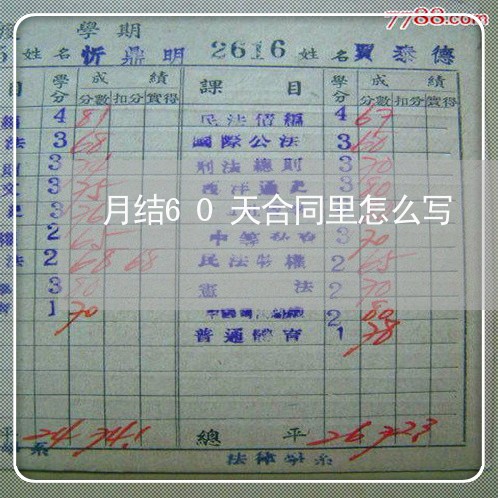 7788.com
學期
姓名 忻鼎明 2616 姓名 賈泰德
目 學分 成績 課目 學分 成績
分數 扣分 實得 分數 扣分 實得
4 81 民法債編 4 67
法 3 68 國際公法 3 60
則 3 刑法總則 3 70
3 75 西洋通史 3 80
月结60天合同里怎么写
2 65 中等 3 70
法 2 68 68 民法物權 2 65
3 80 憲法 2 70
1 70 2 80
普通體育 1 78
平 24 74.1 總平 26 72.3
系 法律學系